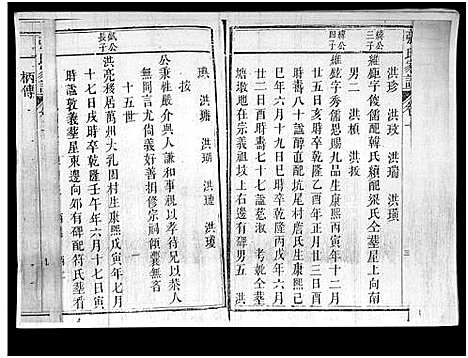 洪珍 洪玫 洪瑞 洪璜
續公三子
維龐字俊儒配韓氏續配梁氏仝葬屋上向南
洪楨 洪扳
續公四子
維鉉字秀儒恩賜九品生康熙丙寅年十二月
廿五日亥時卒乾隆乙酉年正月廿三日酉
時壽八十謚醇直配坑尾村詹氏生康熙己
巳年六月十九日巳時卒乾隆丙戌年六月
廿二日酉時壽七十七謚慈淑 考乾仝葬
塘墩地在宗義祖坟上右邊有碑男五 洪
洪瑞 洪瑞 洪璦
按
公秉性嚴介與人謙和事親以孝待兄以恭人
無間言尤尚義好善捐修宗祠頗費無吝
十五世
斌公長子
洪亮移居萬州大乳固村生康熙戊寅年七月
十七日戌時卒乾隆壬午年六月十七日寅
時謚敦義葬屋東邊向郊有碑配符氏葬看
柄傳